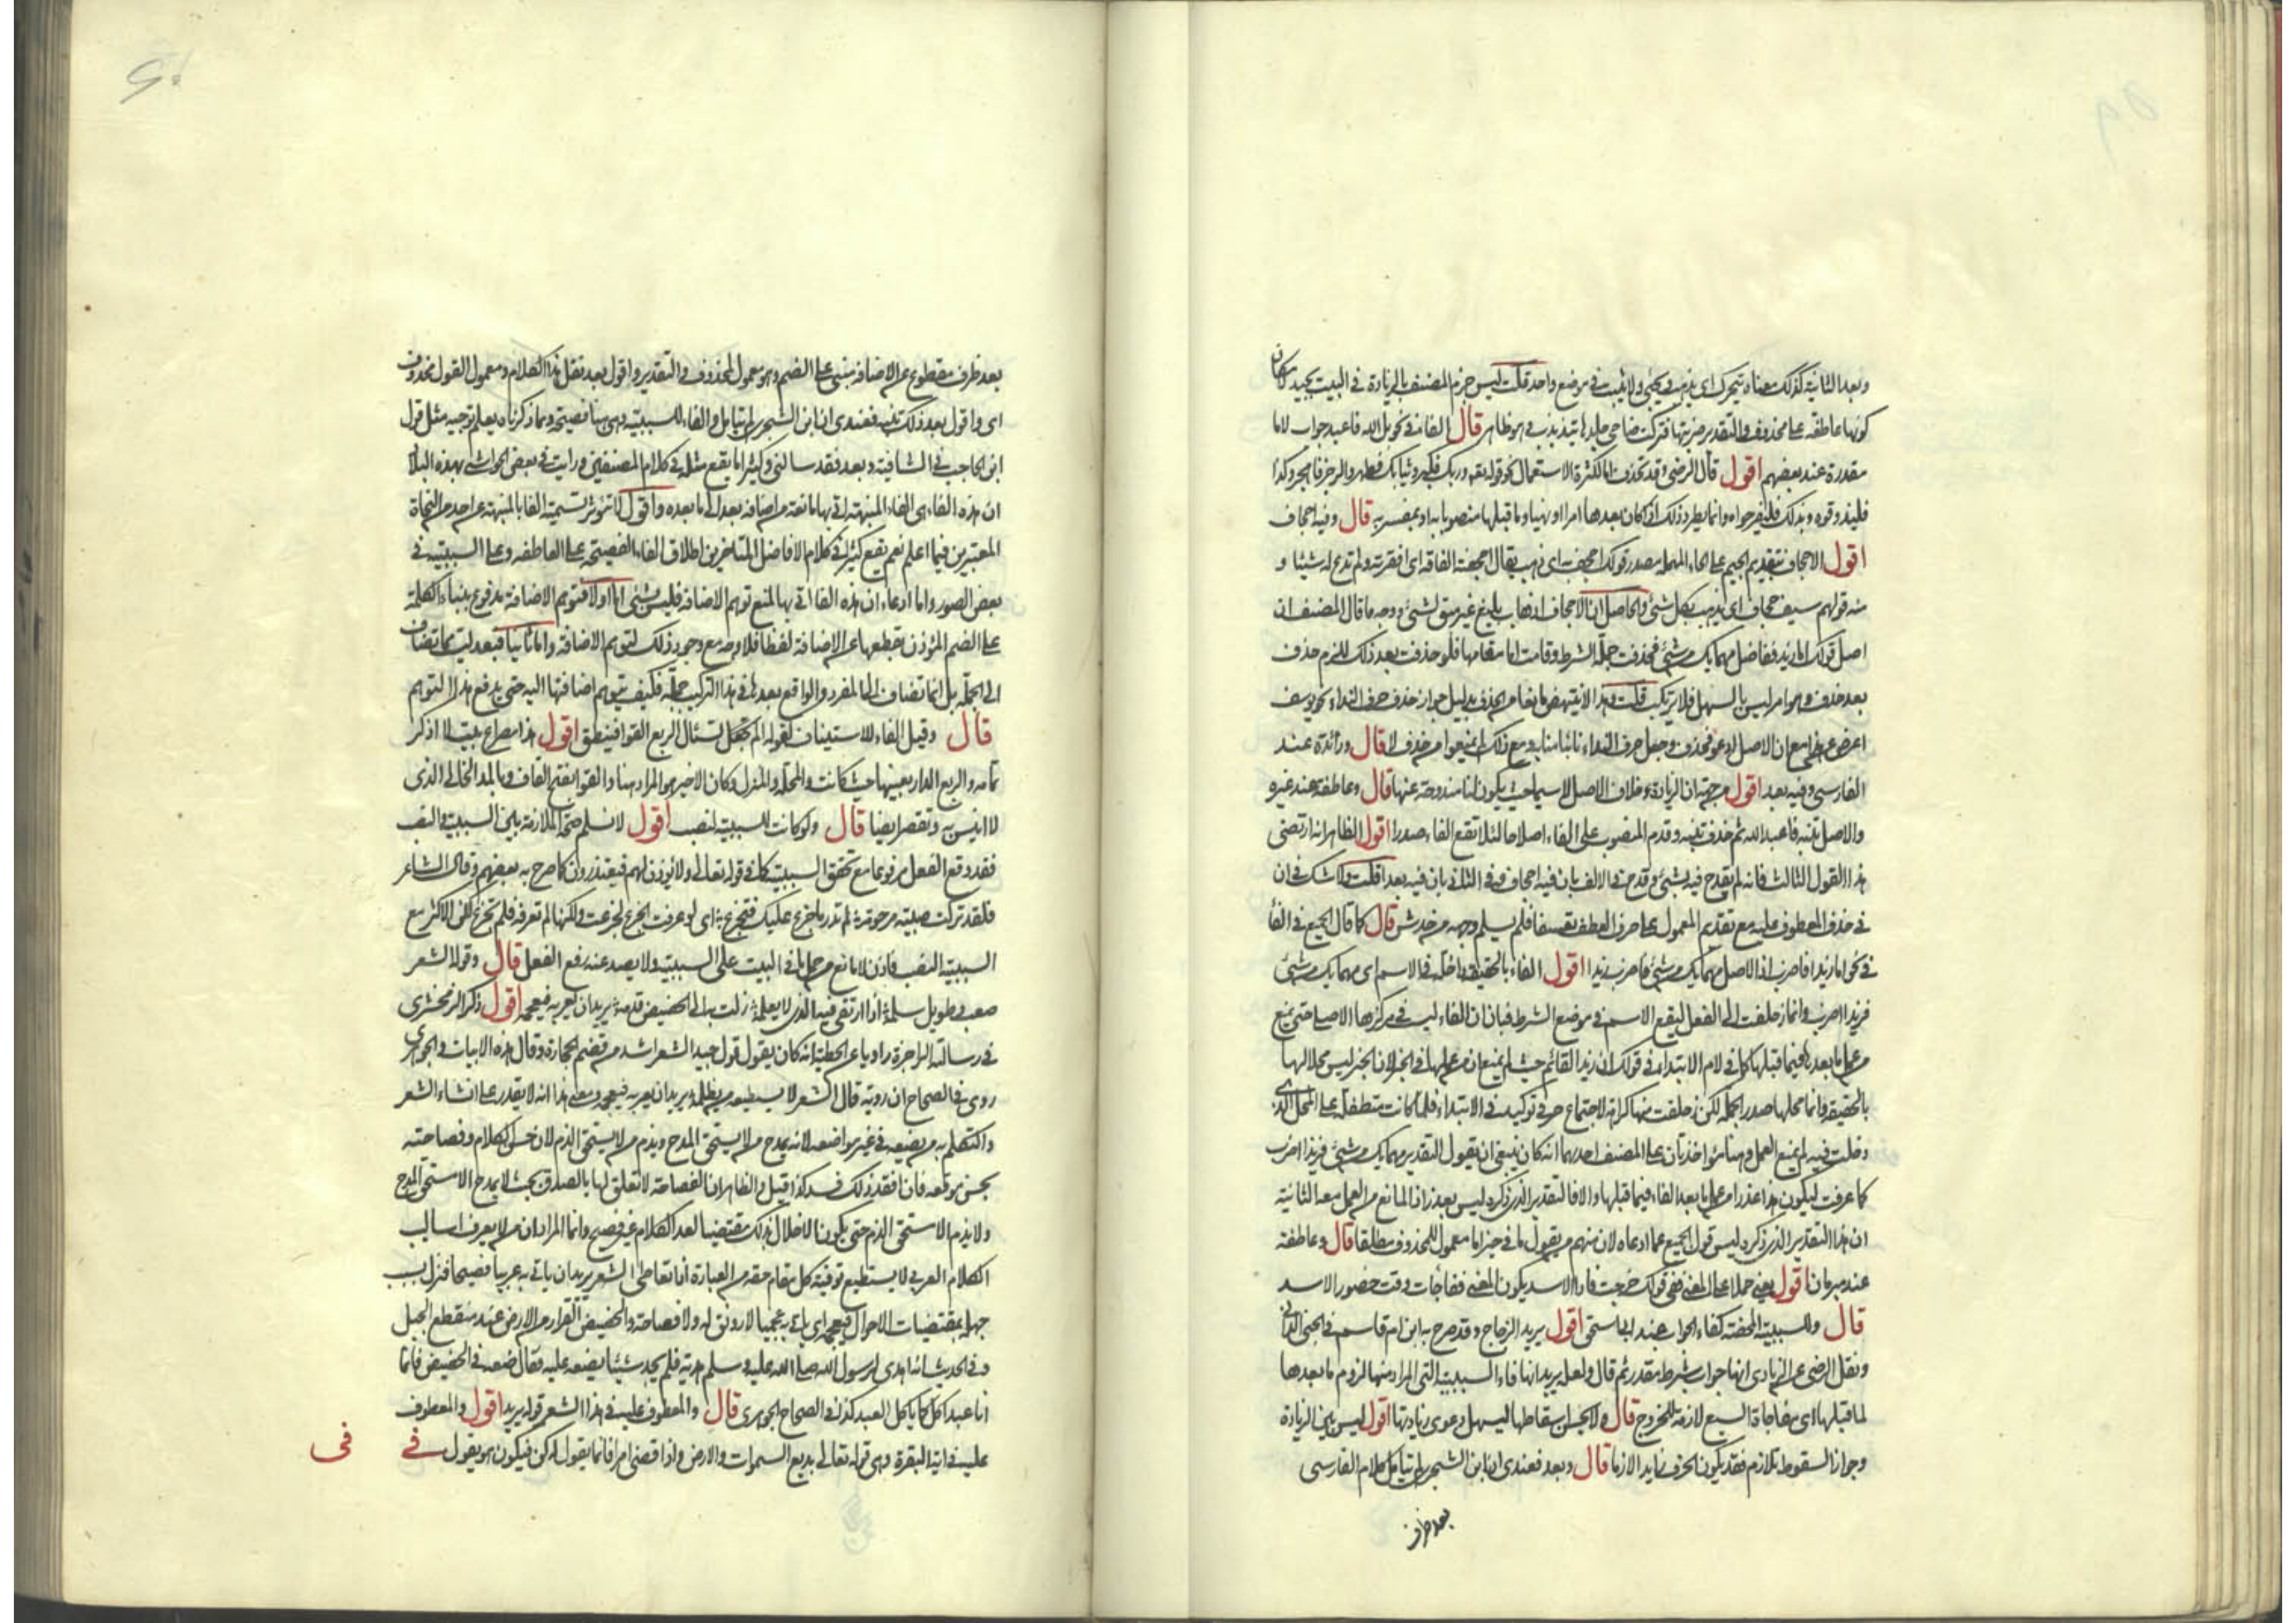 وبعد الثانية كذلك معناه تتحرك اى يذهب ويجئ ولا يثبت فى موضع واحد قلت ليس جزم المصنف بالزيادة فى البيت بجيد لامكان
كونها عاطفة على محذوف والتقدير ضربتها فتركت ضاحى جلدها يتذبذب وهو ظاهر قال الفا فى نحو بل الله فاعبد جواب لاما
مقدرة عند بعضهم اقول قال الرضى وقد تحذف اما لكثرة الاستعمال نحو قوله تع وربك فكبر وثيابك فطهر والرجز فاهجر وكذا
فليذوقوه وبذلك فليفرحوا وانما يطرد ذلك اذا كان بعدها امرا او نهيا وما قبلها منصوبا به او بمفسر به قال وفيه اجحاف
اقول الاجحاف بتقديم الجيم على الحاء المهملة مصدر قولك اجحف اى ذهب يقال اجحفته الفاقة اى افقرته ولم تدع له شيئا و
منه قولهم سيف جحاف اى يذهب بكل شئ والحاصل ان الاجحاف اذهاب بليغ غير مبق لشئ ووجه ما قال المصنف ان
اصل قولك اما زيد ففاضل مهما يك من شئ فحذفت جملة الشرط وقامت اما مقامها فلو حذفت بعد ذلك للزم حذف
بعد حذف وهو امر ليس بالسهل فلا يرتكب قلت وهذا لا ينتهض مانعا من الحذف بدليل جواز حذف حرف النداء نحو يوسف
اعرض عن هذا مع ان الاصل ادعو فحذف وجعل حرف النداء نائبا منابه ومع ذلك لم يمنعوا من حذف لا قال وزائدة عند
الفارسى وفيه بعد اقول من جهة ان الزيادة خلاف الاصل لاسيما حيث يكون لنا مندوحة عنها قال وعاطفة عند غيره
والاصل تنبه فاعبد الله ثم حذف تنبه وقدم المنصوب على الفاء اصلاحا لئلا تقع الفاء صدرا اقول الظاهر انه ارتضى
هذا القول الثالث فانه لم يقدح فيه بشئ وقدح فى الاول بان فيه اجحاف وفى الثانى بان فيه بعدا قلت ولا شك فى ان
فى حذف المعطوف عليه مع تقديم المعمول على حرف العطف تعسفا فلم يسلم وجه من خدش قال كما قال الجميع فى الفا
فى نحو اما زيدا فاضرب اذ الاصل مهما يك من شئ فاضرب زيدا اقول الفاء بالحقيقة داخلة فى الاسم اى مهما يك من شئ
فزيدا اضرب وانما زحلفت الى الفعل ليقع الاسم فى موضع الشرط فبان ان الفاء ليست فى مركزها الاصلى حتى يمنع
من عمل ما بعدها فيما قبلها كما فى لام الابتداء فى قولك ان زيدا لقائم حيث لم يمنع ان من عملها فى الخبر لان الخبر ليس محلا لها
بالحقيقة وانما محلها صدر الجملة لكن زحلفت عنها كراهة لاجتماع حرفى توكيد فى الابتداء فلما كانت متطفلة على المحل الذى
دخلت فيه لم يمنع العمل وهنا مؤاخذتان على المصنف احديهما انه كان ينبغى ان يقول التقدير مهما يك من شئ فزيدا اضرب
كما عرفت ليكون هذا عذرا من عمل ما بعد الفاء فيما قبلها والا فالتقدير الذى ذكره ليس بعذر اذ المانع من العمل معه الثانية
ان هذا التقدير الذى ذكره ليس قول الجميع عما ادعاه لان منهم من يقول ما فى حيز اما معمول للمحذوف مطلقا قال وعاطفة
عند مبرمان اقول يعنى حملا على المعنى ففى قولك خرجت فاذا الاسد يكون المعنى ففاجأت وقت حضور الاسد
قال وللسببية المحضة كفاء الجواب عند ابى اسحق اقول يريد الزجاج وقد صرح به ابن ام قاسم فى الجنى الدانى
ونقل الرضى عن الزيادى انها جواب شرط مقدر ثم قال ولعله يريد انها فاء السببية التى المراد منها لزوم ما بعدها
لما قبلها اى مفاجاة السبع لازمة للخروج قال ولا يحسن اسقاطها ليسهل دعوى زيادتها اقول ليس بين الزيادة
وجواز السقوط تلازم فقد يكون الحرف زايدا لازما قال وبعد فعندى ان ابن الشجرى لم يتامل كلام الفارسى
بعد ظرف
بعد ظرف مقطوع عن الاضافة مبنى على الضم وهو معمول لمحذوف والتقدير واقول بعد نقل هذا الكلام ومعمول القول محذوف
اى واقول بعد ذلك تنبه فعندى ان ابن الشجرى لم يتامل والفاء للسببية وهى هنا فصيحة ومما ذكرناه يعلم توجيه مثل قول
ابن الحاجب فى الشافية وبعد فقد سالنى وكثيرا ما يقع مثله فى كلام المصنفين ورايت فى بعض الحواشى بهذه البلاد
ان هذه الفاء هى الفاء المنبهة اتى بها مانعة من اضافة بعد الى ما بعده واقول لا تؤثر تسمية الفا بالمنبهة عن احد من النحاة
المعتبرين فيما اعلم نعم يقع كثيرا فى كلام الافاضل المتاخرين اطلاق الفاء الفصيحة على العاطفة وعلى السببية فى
بعض الصور واما ادعاء ان هذه الفا اتى بها لمنع توهم الاضافة فليس بشئ اما اولا فتوهم الاضافة مدفوع ببناء الكلمة
على الضم المؤذن بقطعها عن الاضافة لفظا فلا وجه مع وجود ذلك لتوهم الاضافة واما ثانيا فبعد ليست مما تضاف
الى الجملة بل انما تضاف الى المفرد والواقع بعدها فى هذا التركيب جملة فكيف يتوهم اضافتها اليه حتى يدفع هذا التوهم
قال وقيل الفاء للاستيناف كقوله الم تجعل تسئال الربع القوا فينطق اقول هذا مصراع بيت لا اذكر
تمامه والربع الدار بعينها حيث كانت والمحلة والمنزل وكان الاخير هو المراد هنا والقواء بفتح القاف وبالمد الخالى الذى
لا انيس به وتقصر ايضا قال ولو كانت للسببية لنصب اقول لا نسلم صحة الملازمة بين السببية والنصب
فقد وقع الفعل مرفوعا مع تحقق السببية كما فى قوله تعالى ولا يؤذن لهم فيعتذرون كما صرح به بعضهم وقال الشاعر
فلقد تركت صبية مرحومة لم تدر ما جزع عليك فتجزع اى لو عرفت الجزع لجزعت ولكنها لم تعرفه فلم تجزع لكن الاكثر مع
السببية النصب فاذن لا مانع من حمل ما فى البيت على السببية ولا يصد عنه رفع الفعل قال وقوله الشعر
صعب وطويل سلمه اذا ارتقى فيه الذى لا يعلمه زلت به الى الحضيض قدمه يريد ان يعربه فيعجمه اقول ذكر الزمخشرى
فى رسالته الزاجرة راويا عن الحطيئة انه كان يقول قول جيد الشعر اشد من قضم الحجارة وقال هذه الابيات والجوهرى
روى فى الصحاح ان روبة قال الشعر لا يسطيعه من يظلمه يريد ان يعربه فيعجمه ومعنى هذا انه لا يقدر على انشاء الشعر
والتكلم به من يضعه فى غير مواضعه لانه يمدح من لا يستحق المدح ويذم من لا يستحق الذم لان حسن الكلام وفصاحته
بحسن موقعه فان افقد ذلك فسد كذا قيل والظاهر ان الفصاحة لا تعلق لها بالصدق بحيث لا يمدح الا مستحق المدح
ولا يذم الا مستحق الذم حتى يكون الاخلال بذلك مقتضيا لعد الكلام غير فصيح وانما المراد ان من لا يعرف اساليب
الكلام العربى لا يستطيع توفية كل مقام حقه من العبارة اذا تعاطى الشعر يريد ان ياتى به عربيا فصيحا فنزل بسبب
جهله بمقتضيات الاحوال فيعجمه اى ياتى به عجميا لا رونق له ولا فصاحة والحضيض القرار من الارض عند منقطع الجبل
وفى الحديث انه اهدى لرسول الله صلى الله عليه وسلم هدية فلم يجد شيئا يضعه عليه فقال ضعه فى الحضيض فانما
انا عبد اكل كما ياكل العبد كذا فى الصحاح للجوهرى قال والمعطوف عليه فى هذا الشعر قوله يريد اقول والمعطوف
عليه فى اية البقرة وهى قوله تعالى بديع السموات والارض واذا قضى امرا فانما يقول له كن فيكون هو يقول فى
فى